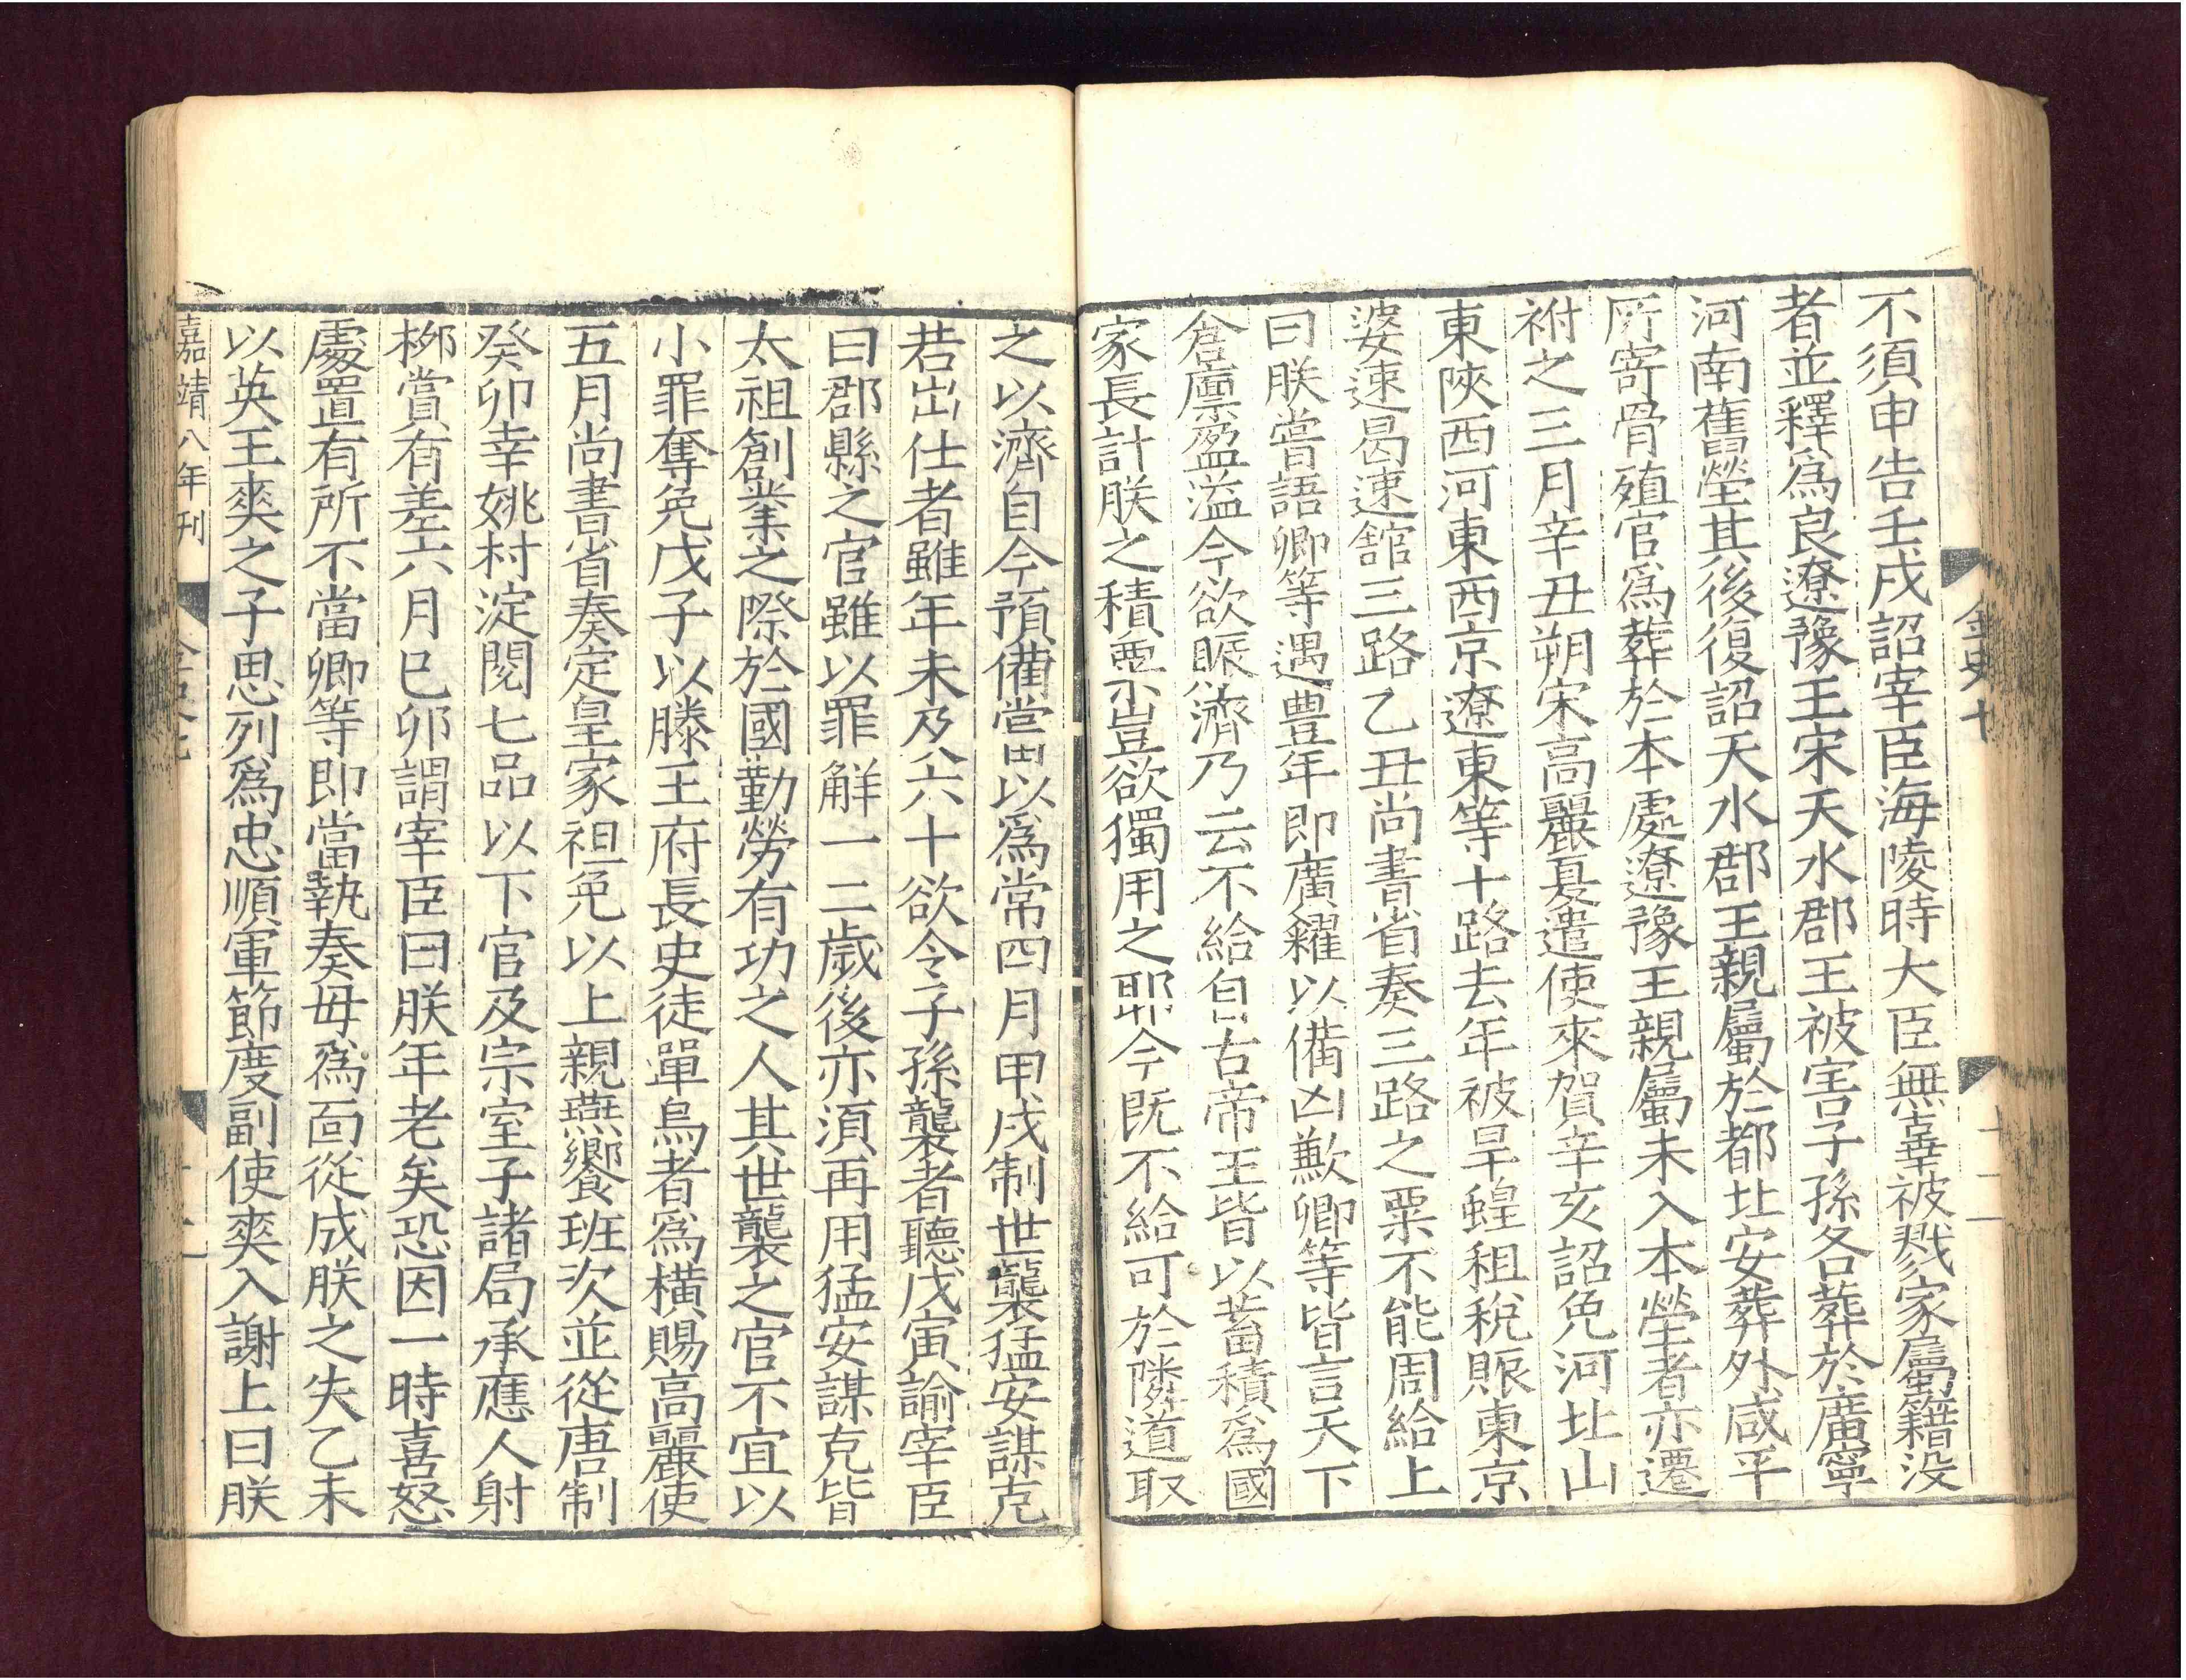 不須申告壬戌詔宰臣海陵時大臣無辜被戮家屬籍没
者並釋爲良遼豫王宋天水郡王被害子孫各葬於廣寧
河南舊塋其後復詔天水郡王親屬於都北安葬外咸平
所寄骨殖官爲葬於本處遼豫王親屬未入本塋者亦遷
祔之三月辛丑朔宋高麗夏遣使來賀辛亥詔免河北山
東陝西河東西京遼東等十路去年被旱蝗租稅賑東京
婆速曷速館三路乙丑尚書省奏三路之粟不能周給上
曰朕嘗語卿等遇豊年即廣糴以備凶歉卿等皆言天下
倉廩盈溢今欲賑濟乃云不給自古帝王皆以蓄積爲國
家長計朕之積粟豈欲獨用之耶今既不給可於隣道取
之以濟自今預備當以爲常四月甲戌制世襲猛安謀克
若出仕者雖年未及六十欲令子孫襲者聽戊寅諭宰臣
曰郡縣之官雖以罪解一二歲後亦須再用猛安謀克皆
太祖創業之際於國勤勞有功之人其世襲之官不宜以
小罪奪免戊子以滕王府長史徒單烏者爲橫賜高麗使
五月尚書省奏定皇家袒免以上親燕饗班次並從唐制
癸卯幸姚村淀閱七品以下官及宗室子諸局承應人射
柳賞有差六月已卯謂宰臣曰朕年老矣恐因一時喜怒
處置有所不當卿等即當執奏毋爲面從成朕之失乙未
以英王爽之子思列爲忠順軍節度副使爽入謝上曰朕
嘉靖八年刊